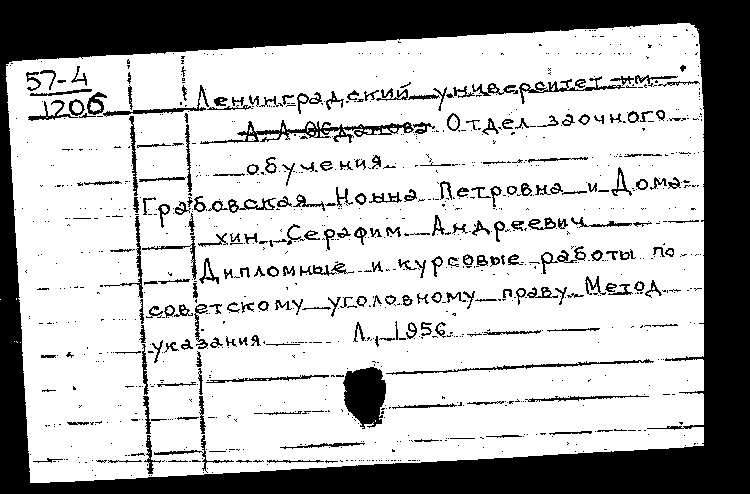 57-4
1206
Ленинградский университет им.
А. А. Жданова. Отдел заочного
обучения.
Грабовская, Нонна Петровна и Дома-
хин, Серафим Андреевич
Дипломные и курсовые работы по
советскому уголовному праву. Метод.
указания. Л., 1956.